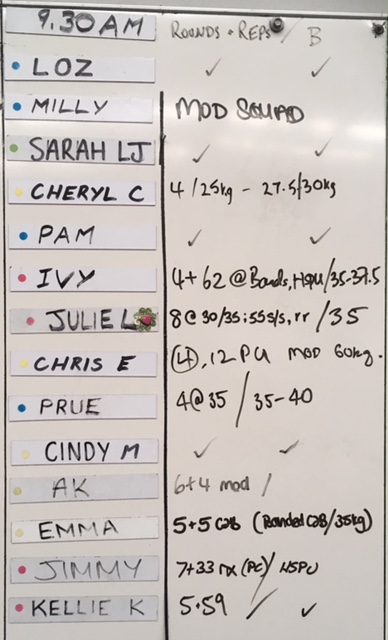 9.30AM ROUNDS + REPS / B
LOZ ✓ ✓
MILLY MOD SQUAD
SARAH LJ ✓ ✓
CHERYL C 4/25kg - 27.5/30kg
PAM ✓ ✓
IVY 4+62 @Bands, HSPU/35-37.5
JULIE L 8@30/35:55s/s, rr /35
CHRIS E 4, 12 PU MOD 60kg.
PRUE 4@35 / 35-40
CINDY M ✓ ✓
AK 6+4 mod /
EMMA 5+5 C2B (Banded C2B/35kg)
JIMMY 7+33 rx (PC) / HSPU
KELLIE K 5+59 / ✓